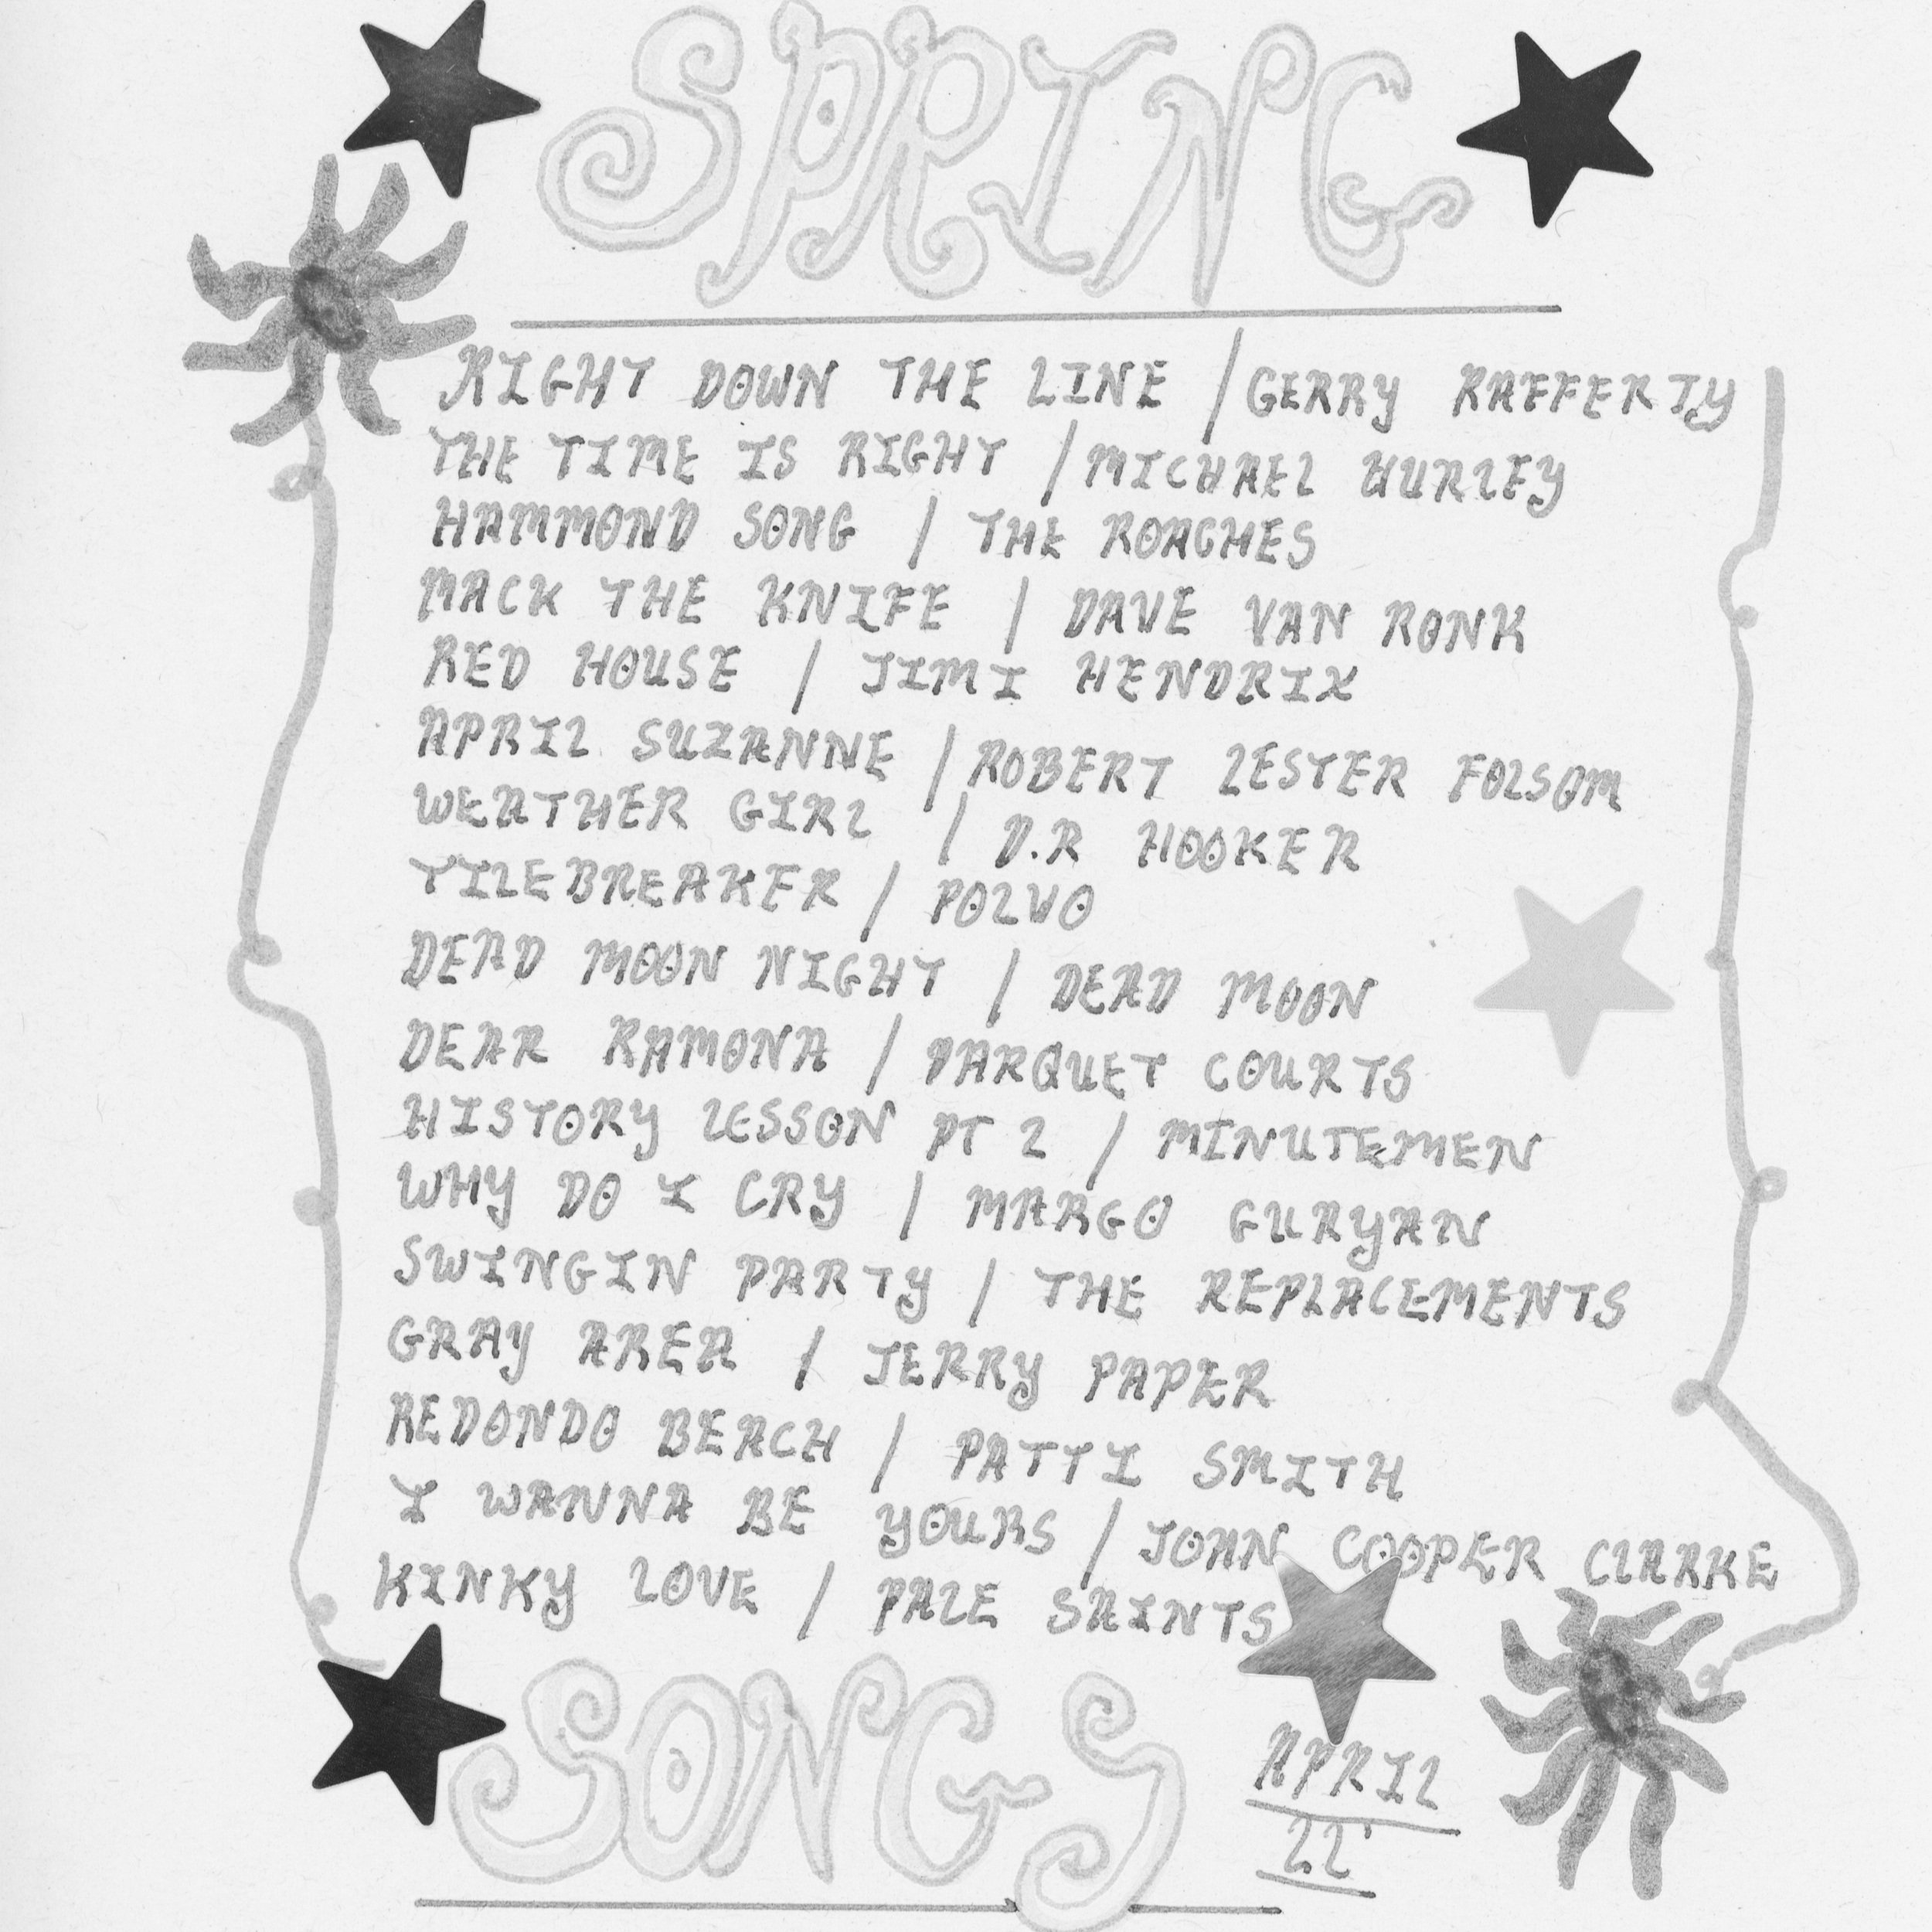 SPRING
RIGHT DOWN THE LINE / GERRY RAFFERTY
THE TIME IS RIGHT / MICHAEL HURLEY
HAMMOND SONG / THE ROACHES
MACK THE KNIFE / DAVE VAN RONK
RED HOUSE / JIMI HENDRIX
APRIL SUZANNE / ROBERT LESTER FOLSOM
WEATHER GIRL / D.R HOOKER
TILEBREAKER / POLVO
DEAD MOON NIGHT / DEAD MOON
DEAR RAMONA / PARQUET COURTS
HISTORY LESSON PT 2 / MINUTEMEN
WHY DO I CRY / MARGO GURYAN
SWINGIN PARTY / THE REPLACEMENTS
GRAY AREA / JERRY PAPER
REDONDO BEACH / PATTI SMITH
I WANNA BE YOURS / JOHN COOPER CLARKE
KINKY LOVE / PALE SAINTS
SONGS
APRIL
22'